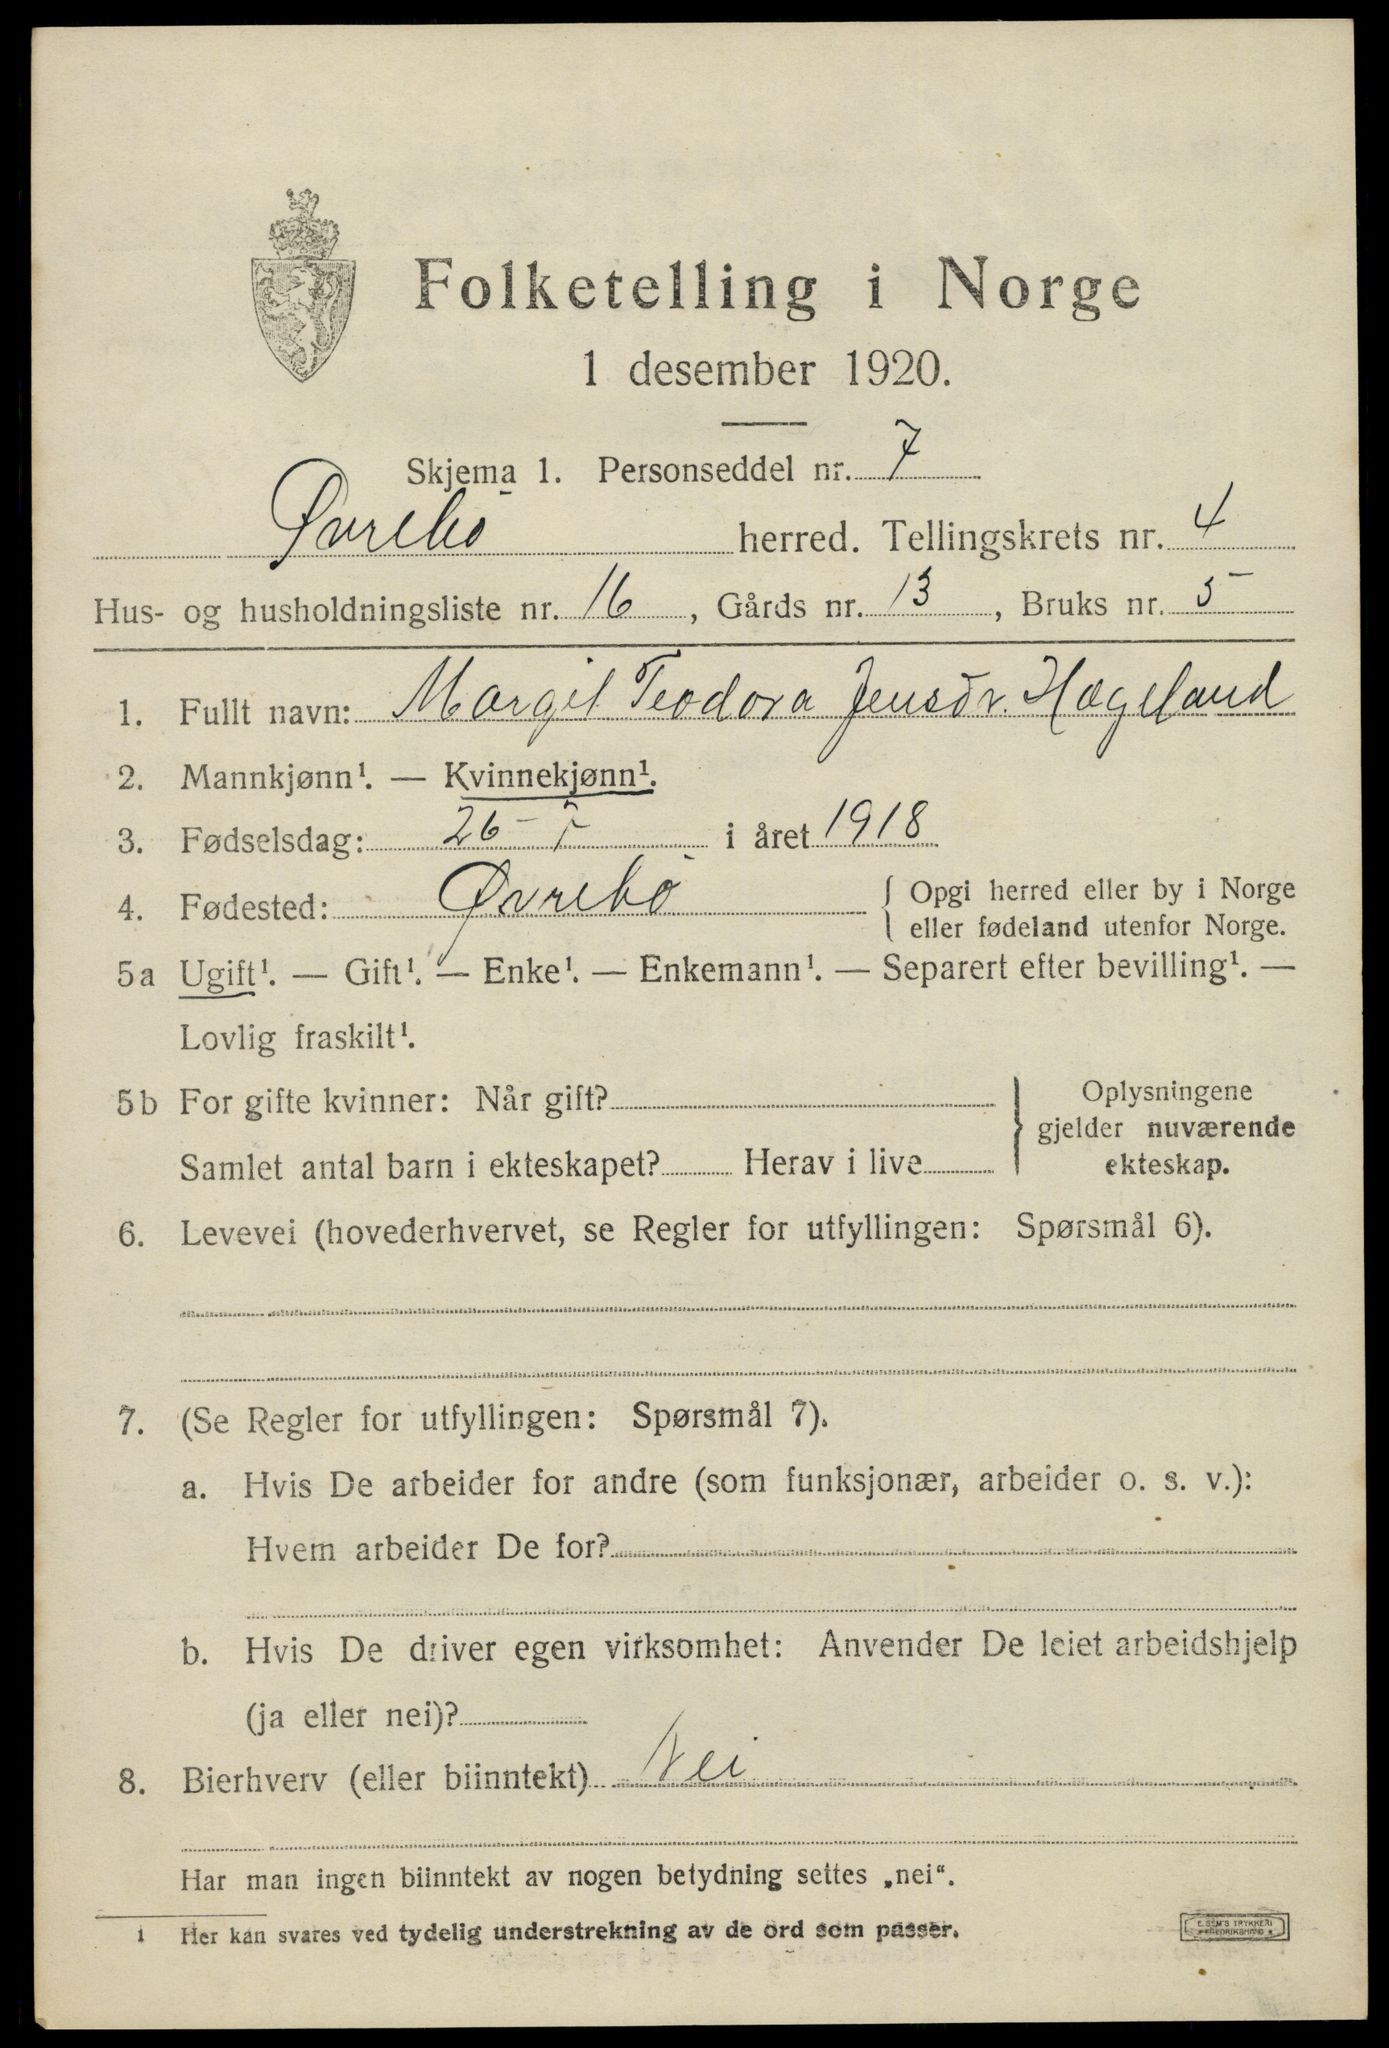 Folketelling i Norge
1 desember 1920.
Skjema 1. Personseddel nr. 7
Øvrebö herred. Tellingskrets nr. 4
Hus- og husholdningsliste nr. 16, Gårds nr. 13, Bruks nr. 5
1. Fullt navn: Margit Teodora Jensdr. Hægeland
2. Mannkjønn¹. — Kvinnekjønn¹.
3. Fødselsdag: 26- i året 1918
4. Fødested: Øvrebö { Opgi herred eller by i Norge
eller fødeland utenfor Norge.
5a Ugift¹. — Gift¹. — Enke¹. — Enkemann¹. — Separert efter bevilling¹. —
Lovlig fraskilt¹.
5b For gifte kvinner: Når gift? } Oplysningene
gjelder nuværende
Samlet antal barn i ekteskapet? Herav i live ekteskap.
6. Levevei (hovederhvervet, se Regler for utfyllingen: Spørsmål 6).
7. (Se Regler for utfyllingen: Spørsmål 7).
a. Hvis De arbeider for andre (som funksjonær, arbeider o. s. v.):
Hvem arbeider De for?
b. Hvis De driver egen virksomhet: Anvender De leiet arbeidshjelp
(ja eller nei)?
8. Bierhverv (eller biinntekt) Nei
Har man ingen biinntekt av nogen betydning settes „nei“.
1 Her kan svares ved tydelig understrekning av de ord som passer.
E. SEM'S TRYKKERI
FREDRIKSHALD